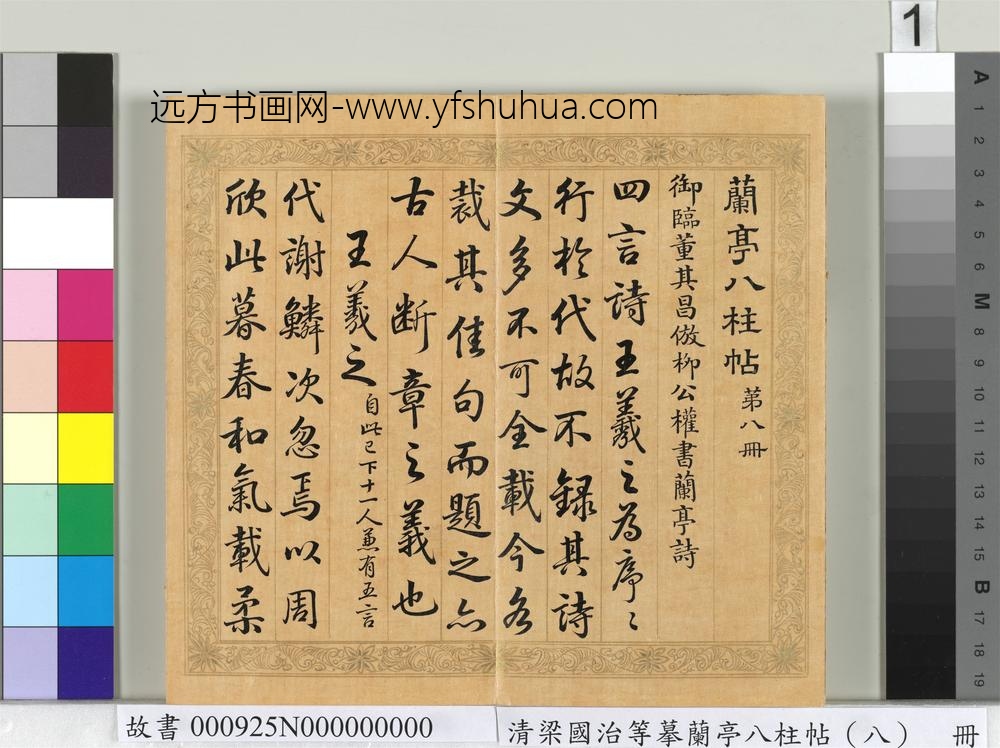 远方书画网-www.yfshuhua.com
1
蘭亭八柱帖 第八冊
御臨董其昌倣柳公權書蘭亭詩
四言詩王羲之為序〻
行於代故不錄其詩
文多不可全載今各
裁其佳句而題之亦
古人断章之義也
王羲之 自此已下十一人兼有五言
代謝鱗次忽焉以周
欣此暮春和氣載柔
A 1 2 3 4 5 6 M 8 9 10 11 12 13 14 15 B 17 18 19
故書 000925N000000000
清梁國治等摹蘭亭八柱帖（八） 冊